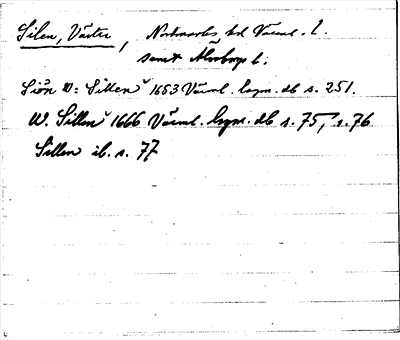 Silen, Västra, Nordmarks hd Värml. l.
samt Älvsborgs l.
Siön W: Sillen 1653 Värml. lagm. db s. 251.
W. Sillen 1666 Värml. lagm. db s. 75, s. 76
Sillen ib. s. 77